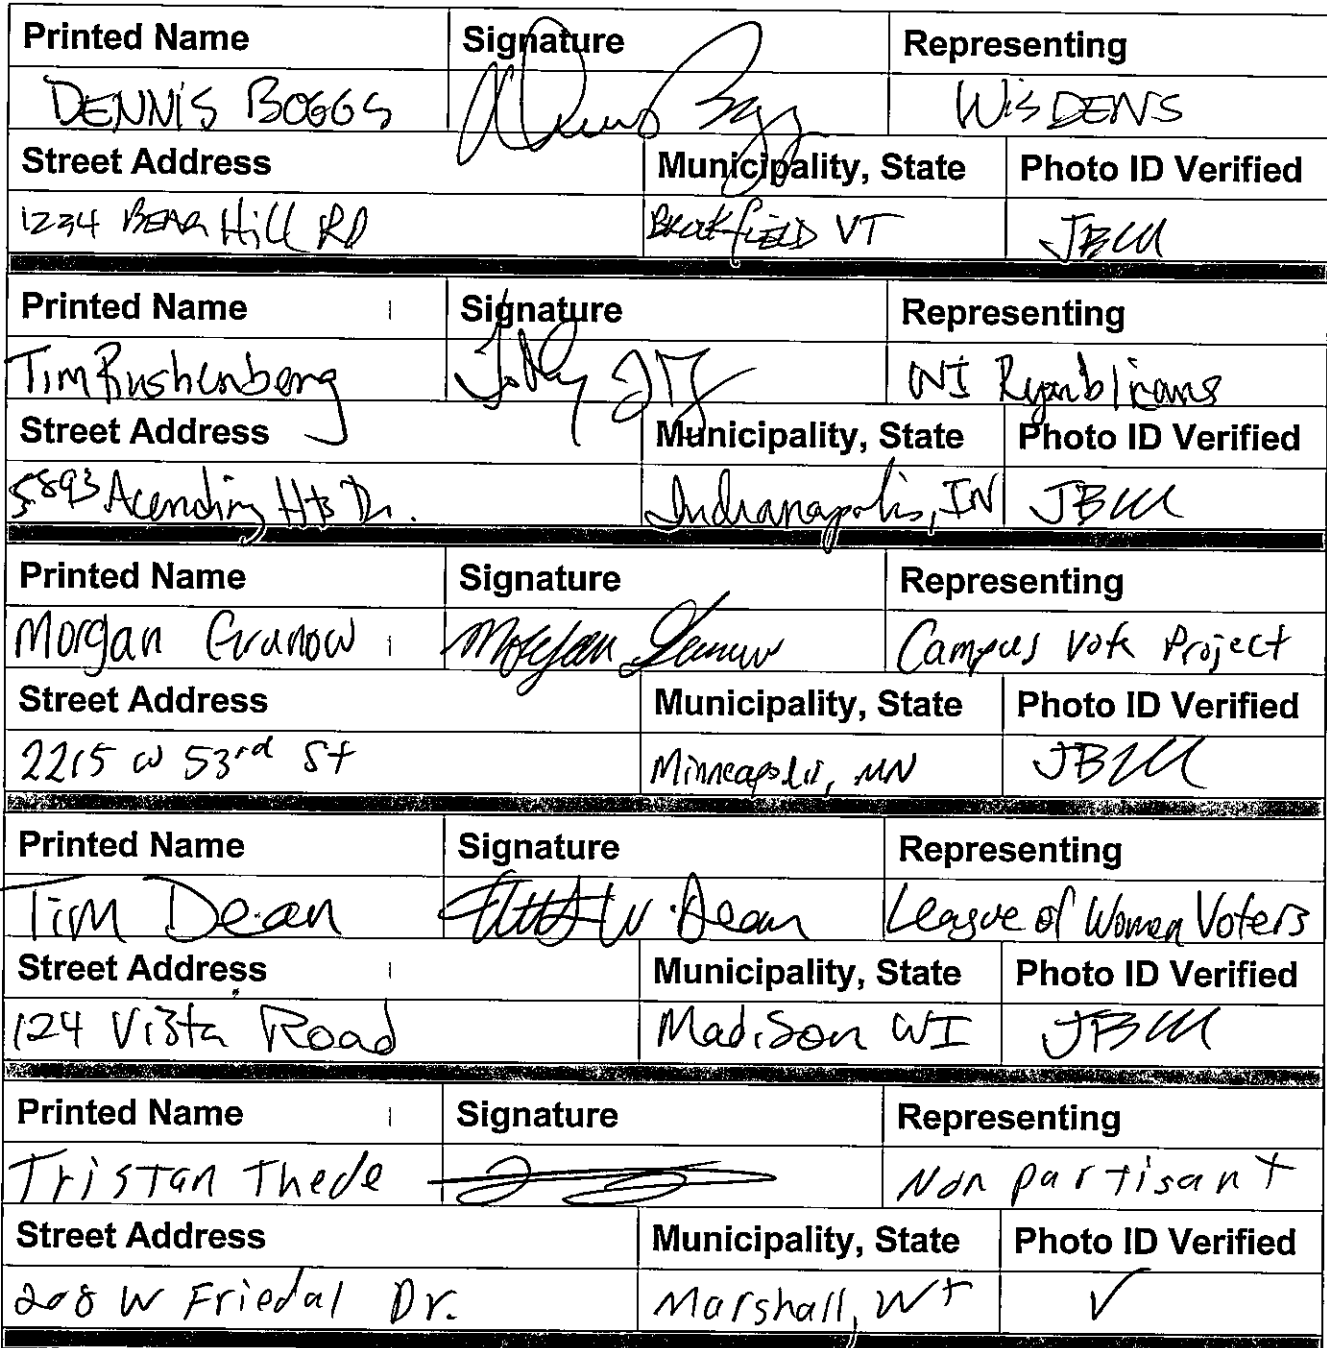 Printed Name Signature Representing
DENNIS BOGGS WIS DEMS
Street Address Municipality, State Photo ID Verified
1234 BEAR Hill RD Brookfield VT JBM
Printed Name Signature Representing
Tim Rushenberg WI Republicans
Street Address Municipality, State Photo ID Verified
5893 Acending Hts Dr. Indianapolis, IN JBM
Printed Name Signature Representing
Morgan Grunow Morgan Campus Vote Project
Street Address Municipality, State Photo ID Verified
2215 W 53rd St Minneapolis, MN JBM
Printed Name Signature Representing
Tim Dean W. Dean League of Women Voters
Street Address Municipality, State Photo ID Verified
124 Vista Road Madison WI JBM
Printed Name Signature Representing
Tristan Thede Non partisant
Street Address Municipality, State Photo ID Verified
208 W Friedal Dr. Marshall, WI ✓